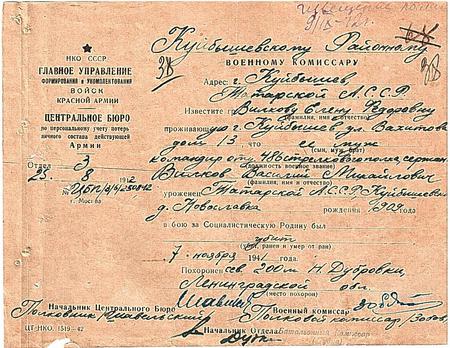 Извещение
НКО СССР
ГЛАВНОЕ УПРАВЛЕНИЕ
ФОРМИРОВАНИЯ и УКОМПЛЕКТОВАНИЯ
ВОЙСК
КРАСНОЙ АРМИИ
ЦЕНТРАЛЬНОЕ БЮРО
по персональному учету потерь
личного состава действующей
Армии
Отдел 3
25 8 1942
г. Москва
Куйбышевскому Районному
ВОЕННОМУ КОМИССАРУ
38
Адрес: г. Куйбышев
Татарской А.С.С.Р
Известите гр. Вилкову Елену Федоровну
(фамилия, имя и отчество)
проживающую г. Куйбышев ул. Вахитова
дом 13, что ее муж
(сын, муж, брат)
командир отд 48 стрелкового полка, сержант
(должность военное звание)
Вилков Василий Михайлович
(фамилия, имя и отчество)
уроженец Татарской А.С.С.Р, Куйбышевск
д. Новославка рождения 1909
в бою за Социалистическую Родину был
убит
(убит, ранен и умер от ран)
7 ноября 1941 года.
Похоронен сев. 200 м Н. Дубровки
Ленинградской обл.
(место похорон)
Начальник Центрального Бюро
Полковник
Военный комиссар
Полковой комиссар
Начальник Отдела
Батальонный комиссар
ЦТ-НКО. 1519-42